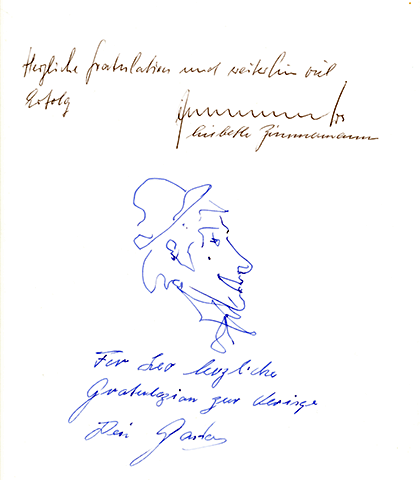 Herzliche Gratulation und weiterhin viel
Erfolg
Lisbeth Zimmermann
Für Leo herzliche
Gratulazion zur
Dein